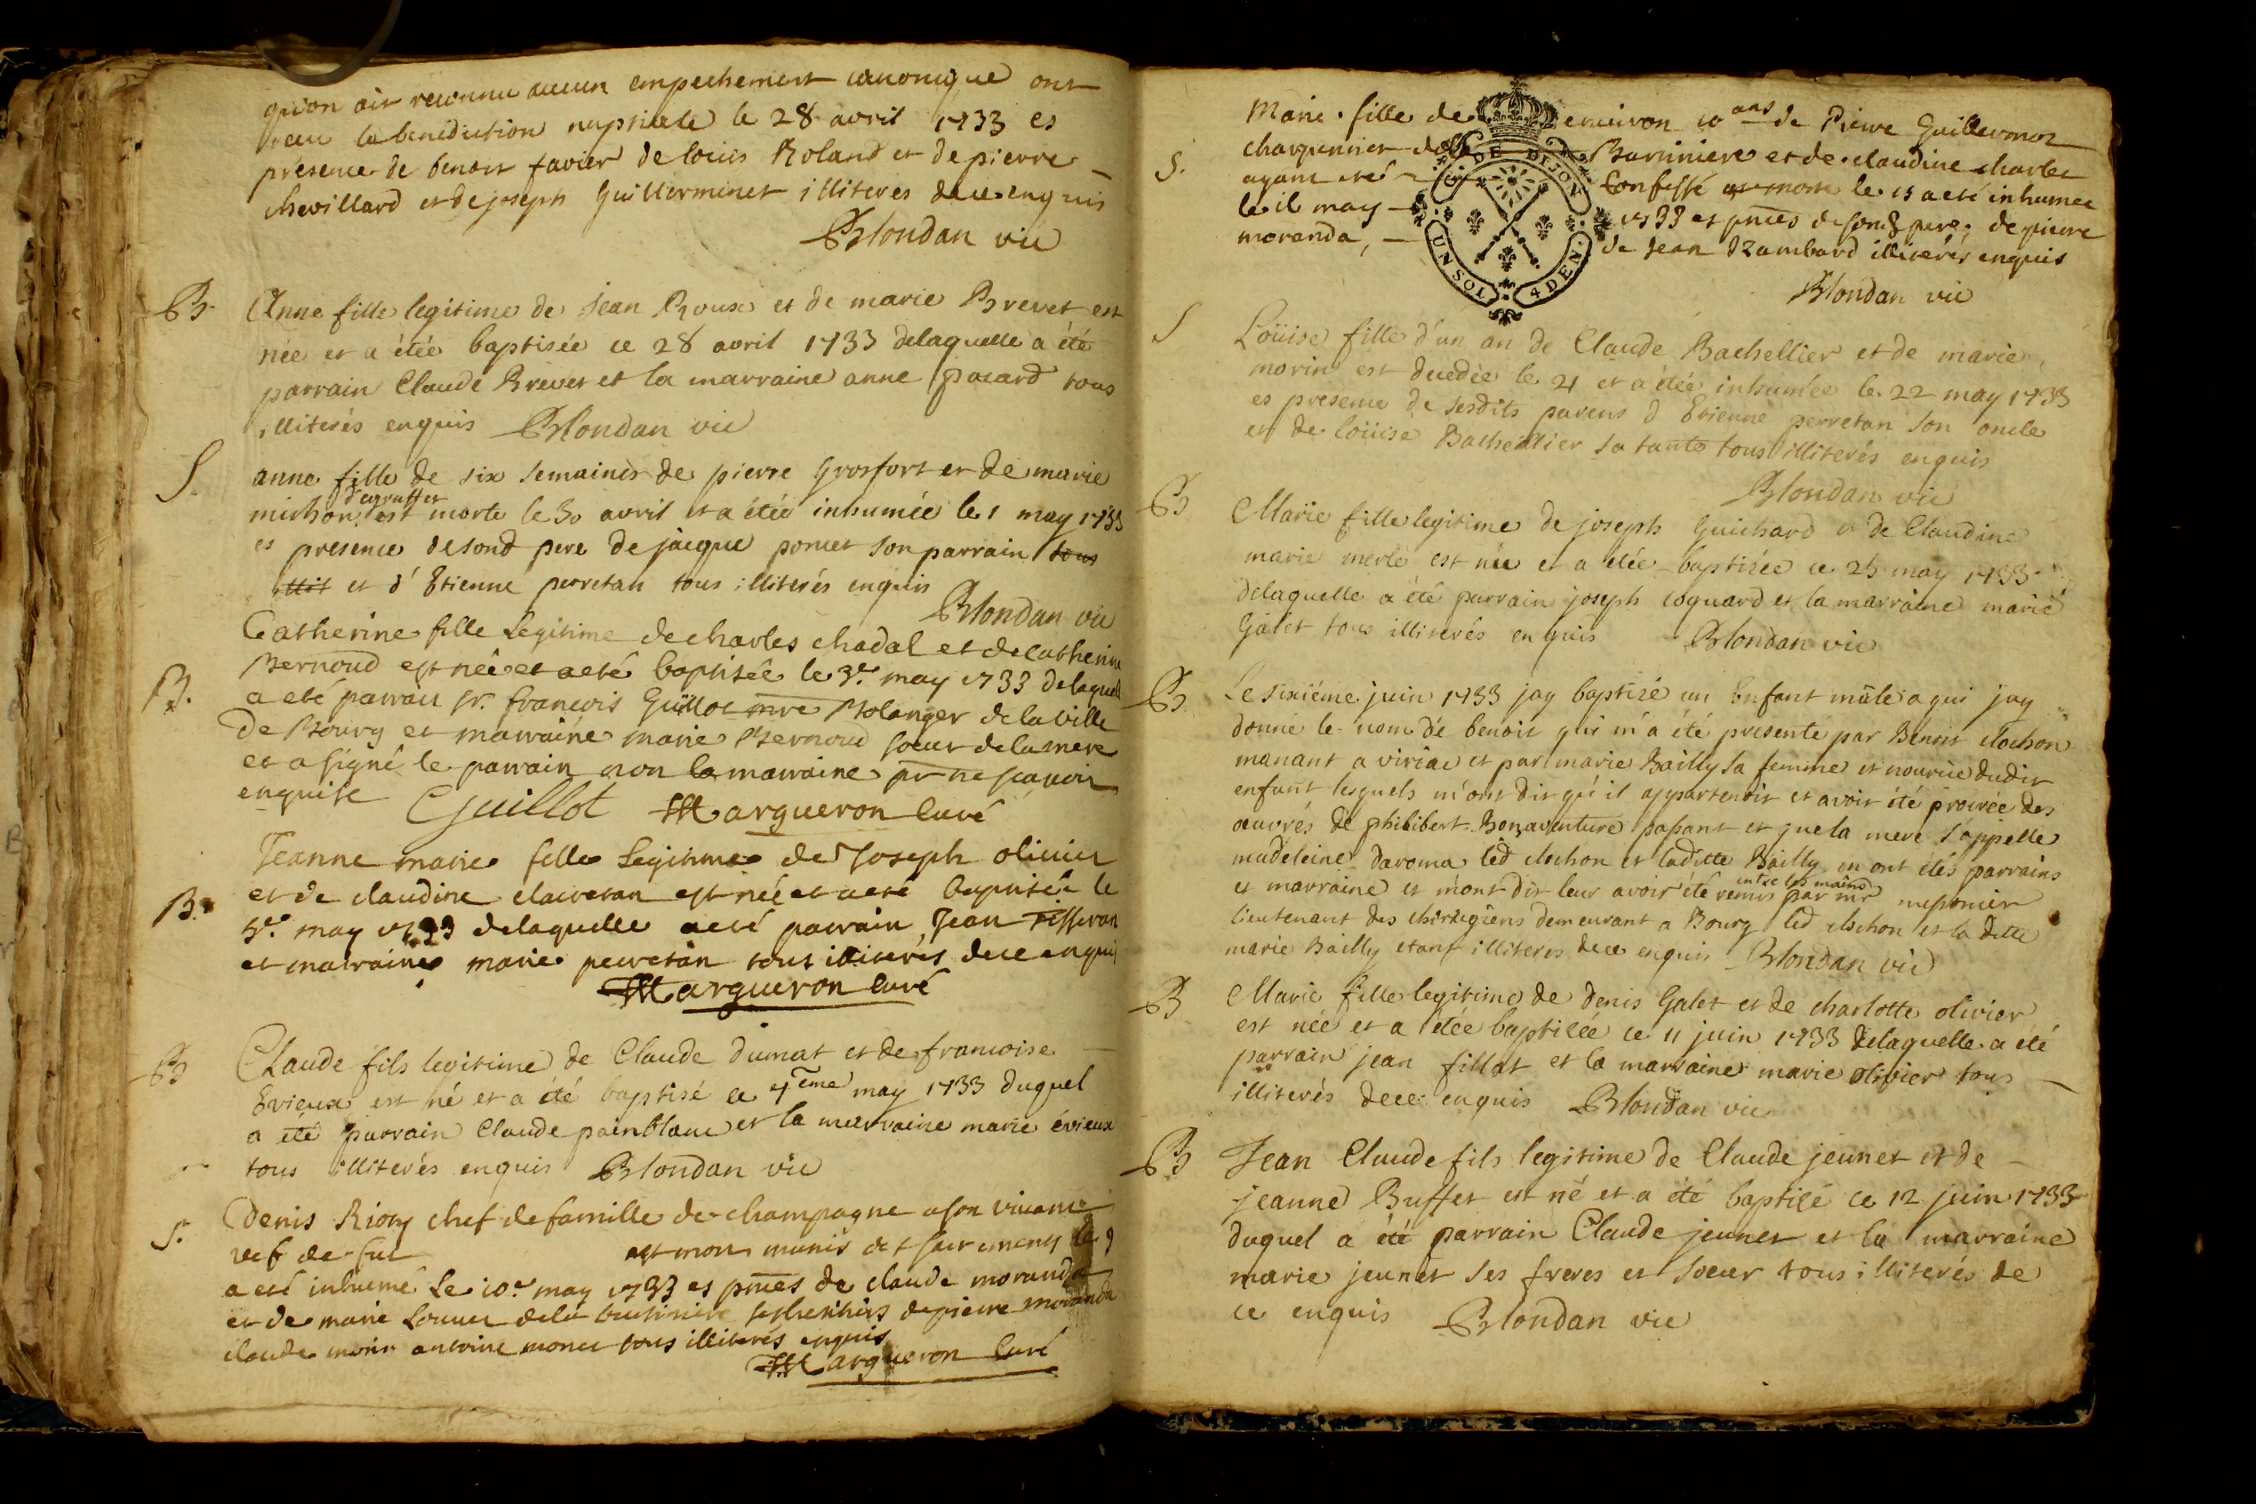 qu'on ait reconnu aucun empechement canonique ont
recu la benediction nuptiale le 28 avril 1733 es
presence de benoit favier de louis Roland et de pierre
chevillard et de joseph Guillerminet illiteres de ce enquis
Blondan vic
B. Anne fille legitime de jean Roux et de marie Brevet est
née et a étée baptisée ce 28 avril 1733 delaquelle a été
parrain Claude Brevet et la marraine anne pacard tous
illiterés enquis Blondan vic
S. anne fille de six semaines de pierre Grosfort et de marie
michon est morte le 30 avril et a étée inhumée le 1 may 1733
es presence de sond pere de jacque poncet son parrain tous
illit et d'Etienne perretan tous illiterés enquis
Blondan vic
Catherine fille Legitime de charles chadal et de catherine
B. Bernoud est née et a eté baptisée le 3e may 1733 delaquelle
a eté parrain sr. francois Guillot mre Bolanger de la ville
de Bourg et marraine marie Bernoud soeur de la mere
et a signé le parrain non la marraine pr ne scavoir
enquise Guillot Margueron curé
Jeanne marie fille Legitime de Joseph olivier
B. et de claudine claveran est née et a eté baptisée le
5e may 1733 delaquelle a eté parrain Jean Tisseran
et marraine marie perretan tous illiterés de ce enquis
Margueron curé
B Claude fils legitime de Claude dumat et de francoise
Evieux est né et a été baptisé ce 7eme may 1733 duquel
a été parrain Claude painblanc et la marraine marie évieux
tous illiterés enquis Blondan vic
S. Denis Rion chef de famille de champagne a son vivant
vef de fut est mort munis des sacrements le 9
a eté inhumé Le 10e may 1733 es pnces de claude moranda
et de marie Louvet de la ses heritiers de pierre moranda
claude morin antoine monet tous illiterés enquis
Margueron curé
Marie fille de environ 10 ans de Pierre Guillermoz
S. charpentier de la Bareiniere et de claudine charlet
ayant eté Confessé est morte le 15 a eté inhumee
le 16 may 1733 es pnces de sond pere, de pierre
moranda, de Jean Rambard illiterés enquis
DE DIJON
UN SOL 4 DEN.
Blondan vic
S Loüise fille d'un an de Claude Bachellier et de marie
morin est decedée le 21 et a étée inhumée le 22 may 1733
es presence de sesdits parens d'Etienne perretan son oncle
et de loüise Bachellier sa tante tous illiterés enquis
Blondan vic
B Marie fille legitime de joseph Guichard et de Claudine
marie merle est née et a étée baptisée ce 25 may 1733
delaquelle a été parrain joseph coquard et la marraine marie
Galet tous illiterés enquis Blondan vic
B Le sixiéme juin 1733 jay baptizé un Enfant mâle a qui jay
donné le nom de benoit qui m'a été presenté par Benoit clochon
manant a viriac et par marie Bailly sa femme et nourice dudit
enfant lesquels m'ont dit qu'il appartenoit et avoir été procréé des
œuvrés de philibert Bonaventure passant et que la mere s'appelle
madeleine davoma led clochon et laditte Bailly en ont étés parrains
et marraine et m'ont dit leur avoir été remis entre les mains par mr meponier
lieutenant des chirurgiens demeurant a Bourg led clochon et la ditte
marie Bailly etant illiteres de ce enquis Blondan vic
B Marie fille legitime de denis Galet et de charlotte olivier
est née et a étée baptisée ce 11 juin 1733 delaquelle a été
parrain jean fillat et la marraine marie olivier tous
illiterés de ce enquis Blondan vic
B Jean Claude fils legitime de Claude jeunet et de
jeanne Buffet est né et a été baptizé ce 12 juin 1733
duquel a été parrain Claude jeunet et la marraine
marie jeunet ses freres et soeur tous illiterés de
ce enquis Blondan vic